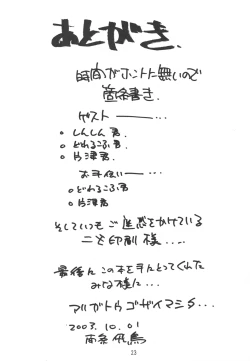 あとがき.
時間がホントに無いので
箇条書き.
ゲスト ―――...
○ しんしん君.
○ どれみこふ君.
○ 片津君.
お手伝い ――...
○ どれみこふ君
○ 片津君
そしていつもご迷惑をかけている
印刷 様....
最後にこの本を手にとってくれた
みな様に...
アリガトウゴザイマシタ...
2003. 10. 01
南条 飛鳥
23